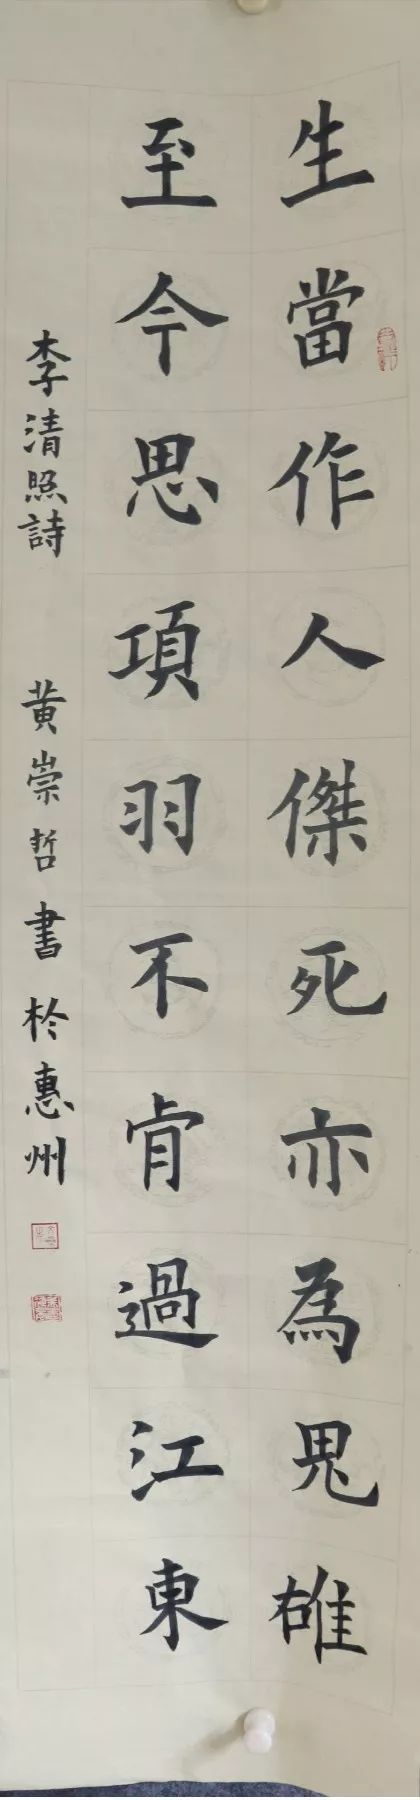 生當作人傑死亦為鬼雄
至今思項羽不肯過江東
李清照詩 黄崇哲書於惠州